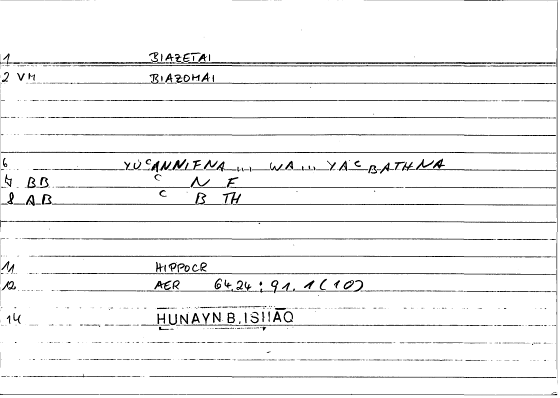 1 BIAZETAI
2 VM BIAZOMAI
6 YUᶜANNIFNA ... WA ... YAᶜBATHNA
7 BB ᶜ N F
8 AB ᶜ B TH
11 HIPPOCR
12 AER 64.24 : 91.1 (10)
14 HUNAYN B. ISHAQ